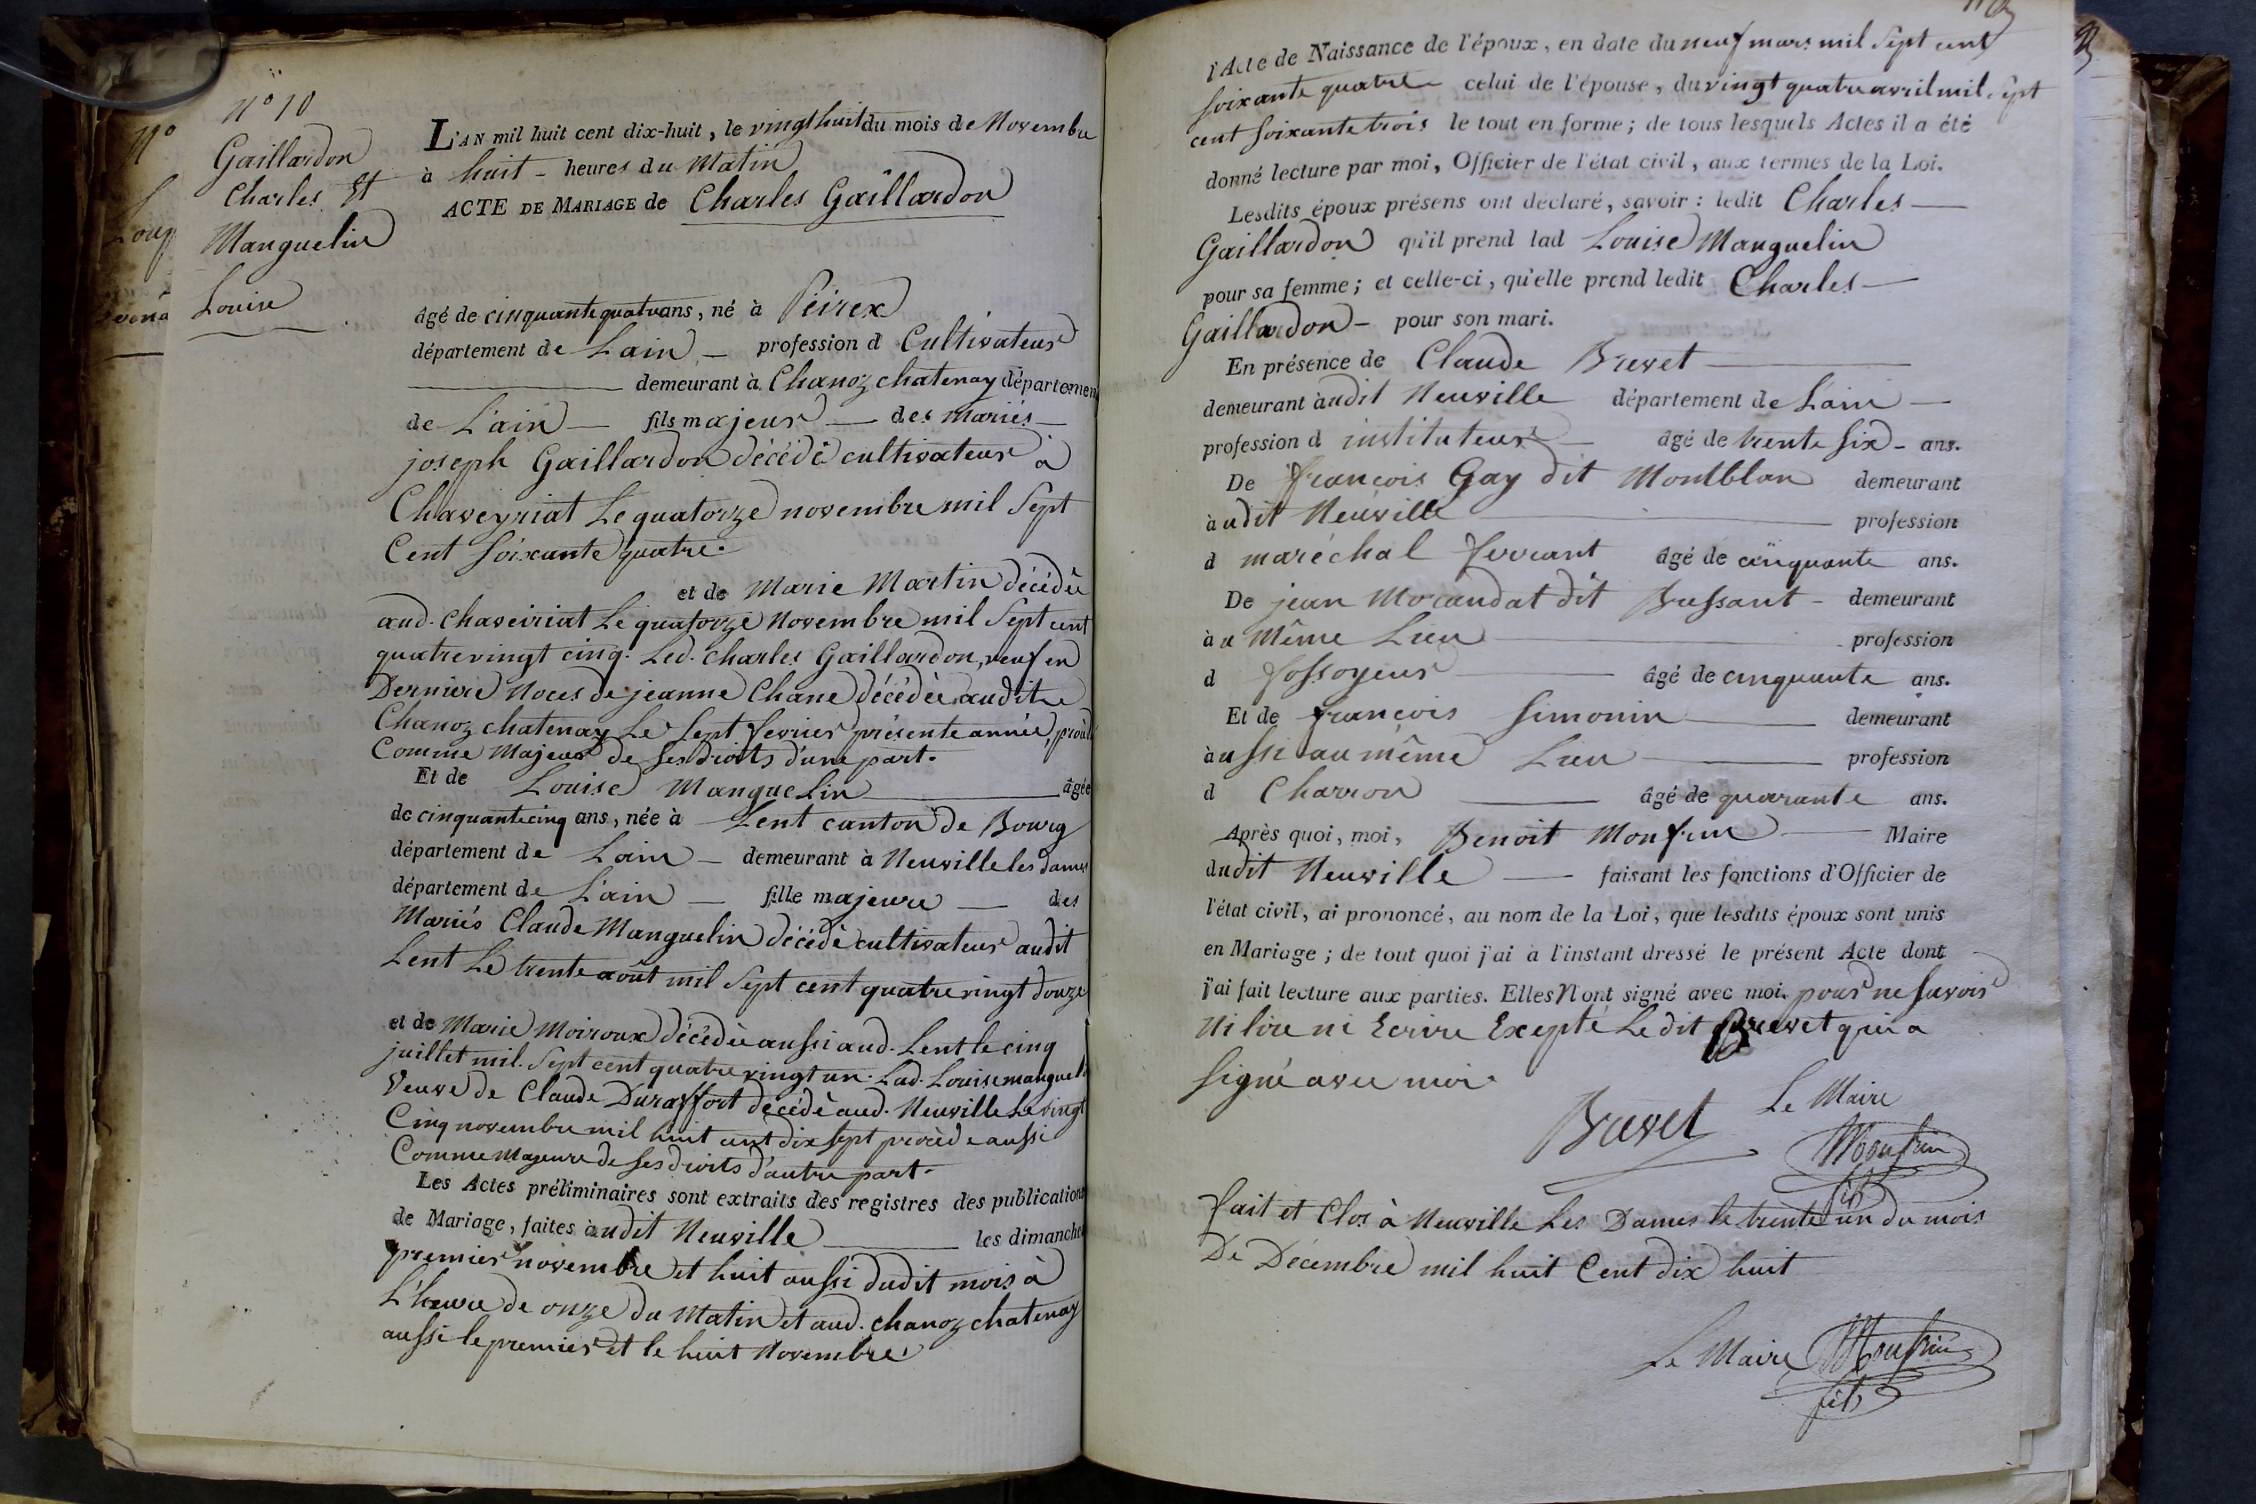 N° 10
Gaillardon
Charles Et
Manguelin
Louise
L'AN mil huit cent dix-huit, le vingt huit du mois de Novembre
à huit - heures du Matin
ACTE DE MARIAGE de Charles Gaillardon
âgé de cinquante quatre ans, né à Peirex
département de L'ain — profession d Cultivateur
demeurant à Chanoz chatenay départemen
de L'ain — fils majeur — des mariés
joseph Gaillardon décédé cultivateur à
Chaveyriat Le quatorze novembre mil Sept
Cent Soixante quatre.
et de Marie Martin décédée
aud. Chaveiriat Le quatorze Novembre mil Sept cent
quatrevingt cinq. Led. Charles Gaillardon, veuf en
Derniere Noces de jeanne Chane décédée audit
Chanoz chatenay Le Sept fevrier présente année,
Comme Majeur de Ses droits d'une part.
Et de Louise Manguelin âgée
de cinquante cinq ans, née à Lent canton de Bourg
département de L'ain — demeurant à Neuville les dames
département de L'ain — fille majeure — des
Mariés Claude Manguelin décédé cultivateur audit
Lent Le trente août mil Sept cent quatre vingt douze
et de Marie Moiroux décédée aussi aud. Lent le cinq
juillet mil Sept cent quatre vingt un. Lad. Louise manguel
Veuve de Claude Duraffort décédé aud. Neuville Le vingt
Cinq novembre mil huit cent dix sept procède aussi
Comme Majeure de Ses droits d'autre part.
Les Actes préliminaires sont extraits des registres des publication
de Mariage, faites à udit Neuville les dimanche
premier novembre et huit aussi dudit mois à
L'heure de onze du Matin et aud. chanoz chatenay
aussi le premier et le huit Novembre
l'Acte de Naissance de l'époux, en date du neuf mars mil Sept cent
Soixante quatre celui de l'épouse, du vingt quatre avril mil Sept
cent Soixante trois le tout en forme; de tous lesquels Actes il a été
donné lecture par moi, Officier de l'état civil, aux termes de la Loi.
Lesdits époux présens ont déclaré, savoir: ledit Charles
Gaillardon qu'il prend lad Louise Manguelin
pour sa femme; et celle-ci, qu'elle prend ledit Charles
Gaillardon - pour son mari.
En présence de Claude Brevet
demeurant à udit Neuville département de L'ain —
profession d instituteur — âgé de trente Six - ans.
De françois Gay dit Montblan demeurant
à udit Neuville profession
d maréchal ferrant âgé de cinquante ans.
De jean Mocandat dit Bressant - demeurant
à u Même Lieu profession
d fossoyeur âgé de cinquante ans.
Et de françois Simonin demeurant
à ussi au même Lieu profession
d Charron âgé de quarante ans.
Après quoi, moi, Benoit Monfrin Maire
dudit Neuville — faisant les fonctions d'Officier de
l'état civil, ai prononcé, au nom de la Loi, que lesdits époux sont unis
en Mariage; de tout quoi j'ai à l'instant dressé le présent Acte dont
j'ai fait lecture aux parties. Elles N'ont signé avec moi. pour ne Savoir
Ni lire ni Ecrire Excepté Le dit Brevet qui a
Signé avec moi.
Brevet Le Maire
Monfrin
fils
fait et Clos à Neuville Les Dames le trente un du mois
De Décembre mil huit Cent dix huit
Le Maire Monfrin
fils